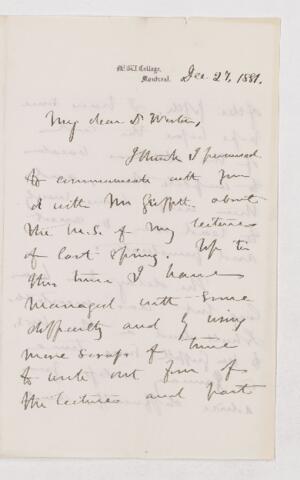 McGill College,
Montreal. Dec 27, 1881.
My dear Dr
I think I promised
to communicate with you
& with Mr Griffith about
the M.S. of my lectures
of last spring. Up to
this time I have
managed with some
difficulty and by using
mere scraps of time
to write out four of
the lectures and part